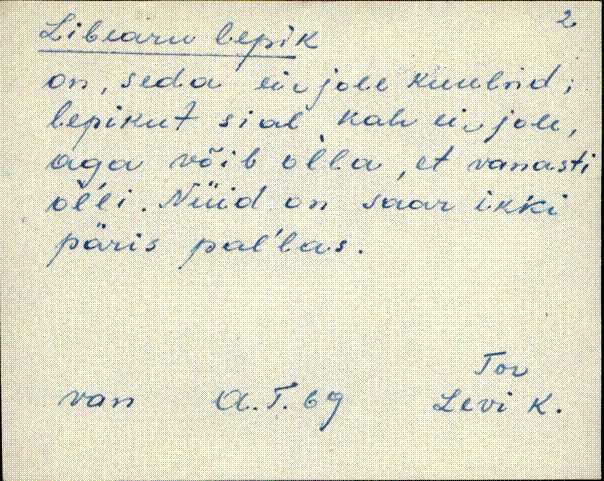 2
Libearu lepik
on, seda ei jole kuulnd;
lepikut sial kah ei jole,
aga võib olla, et vanasti
õl'li. Nüid on saar ikki
päris pal'las.
Tor
van A.T.69 Levi K.